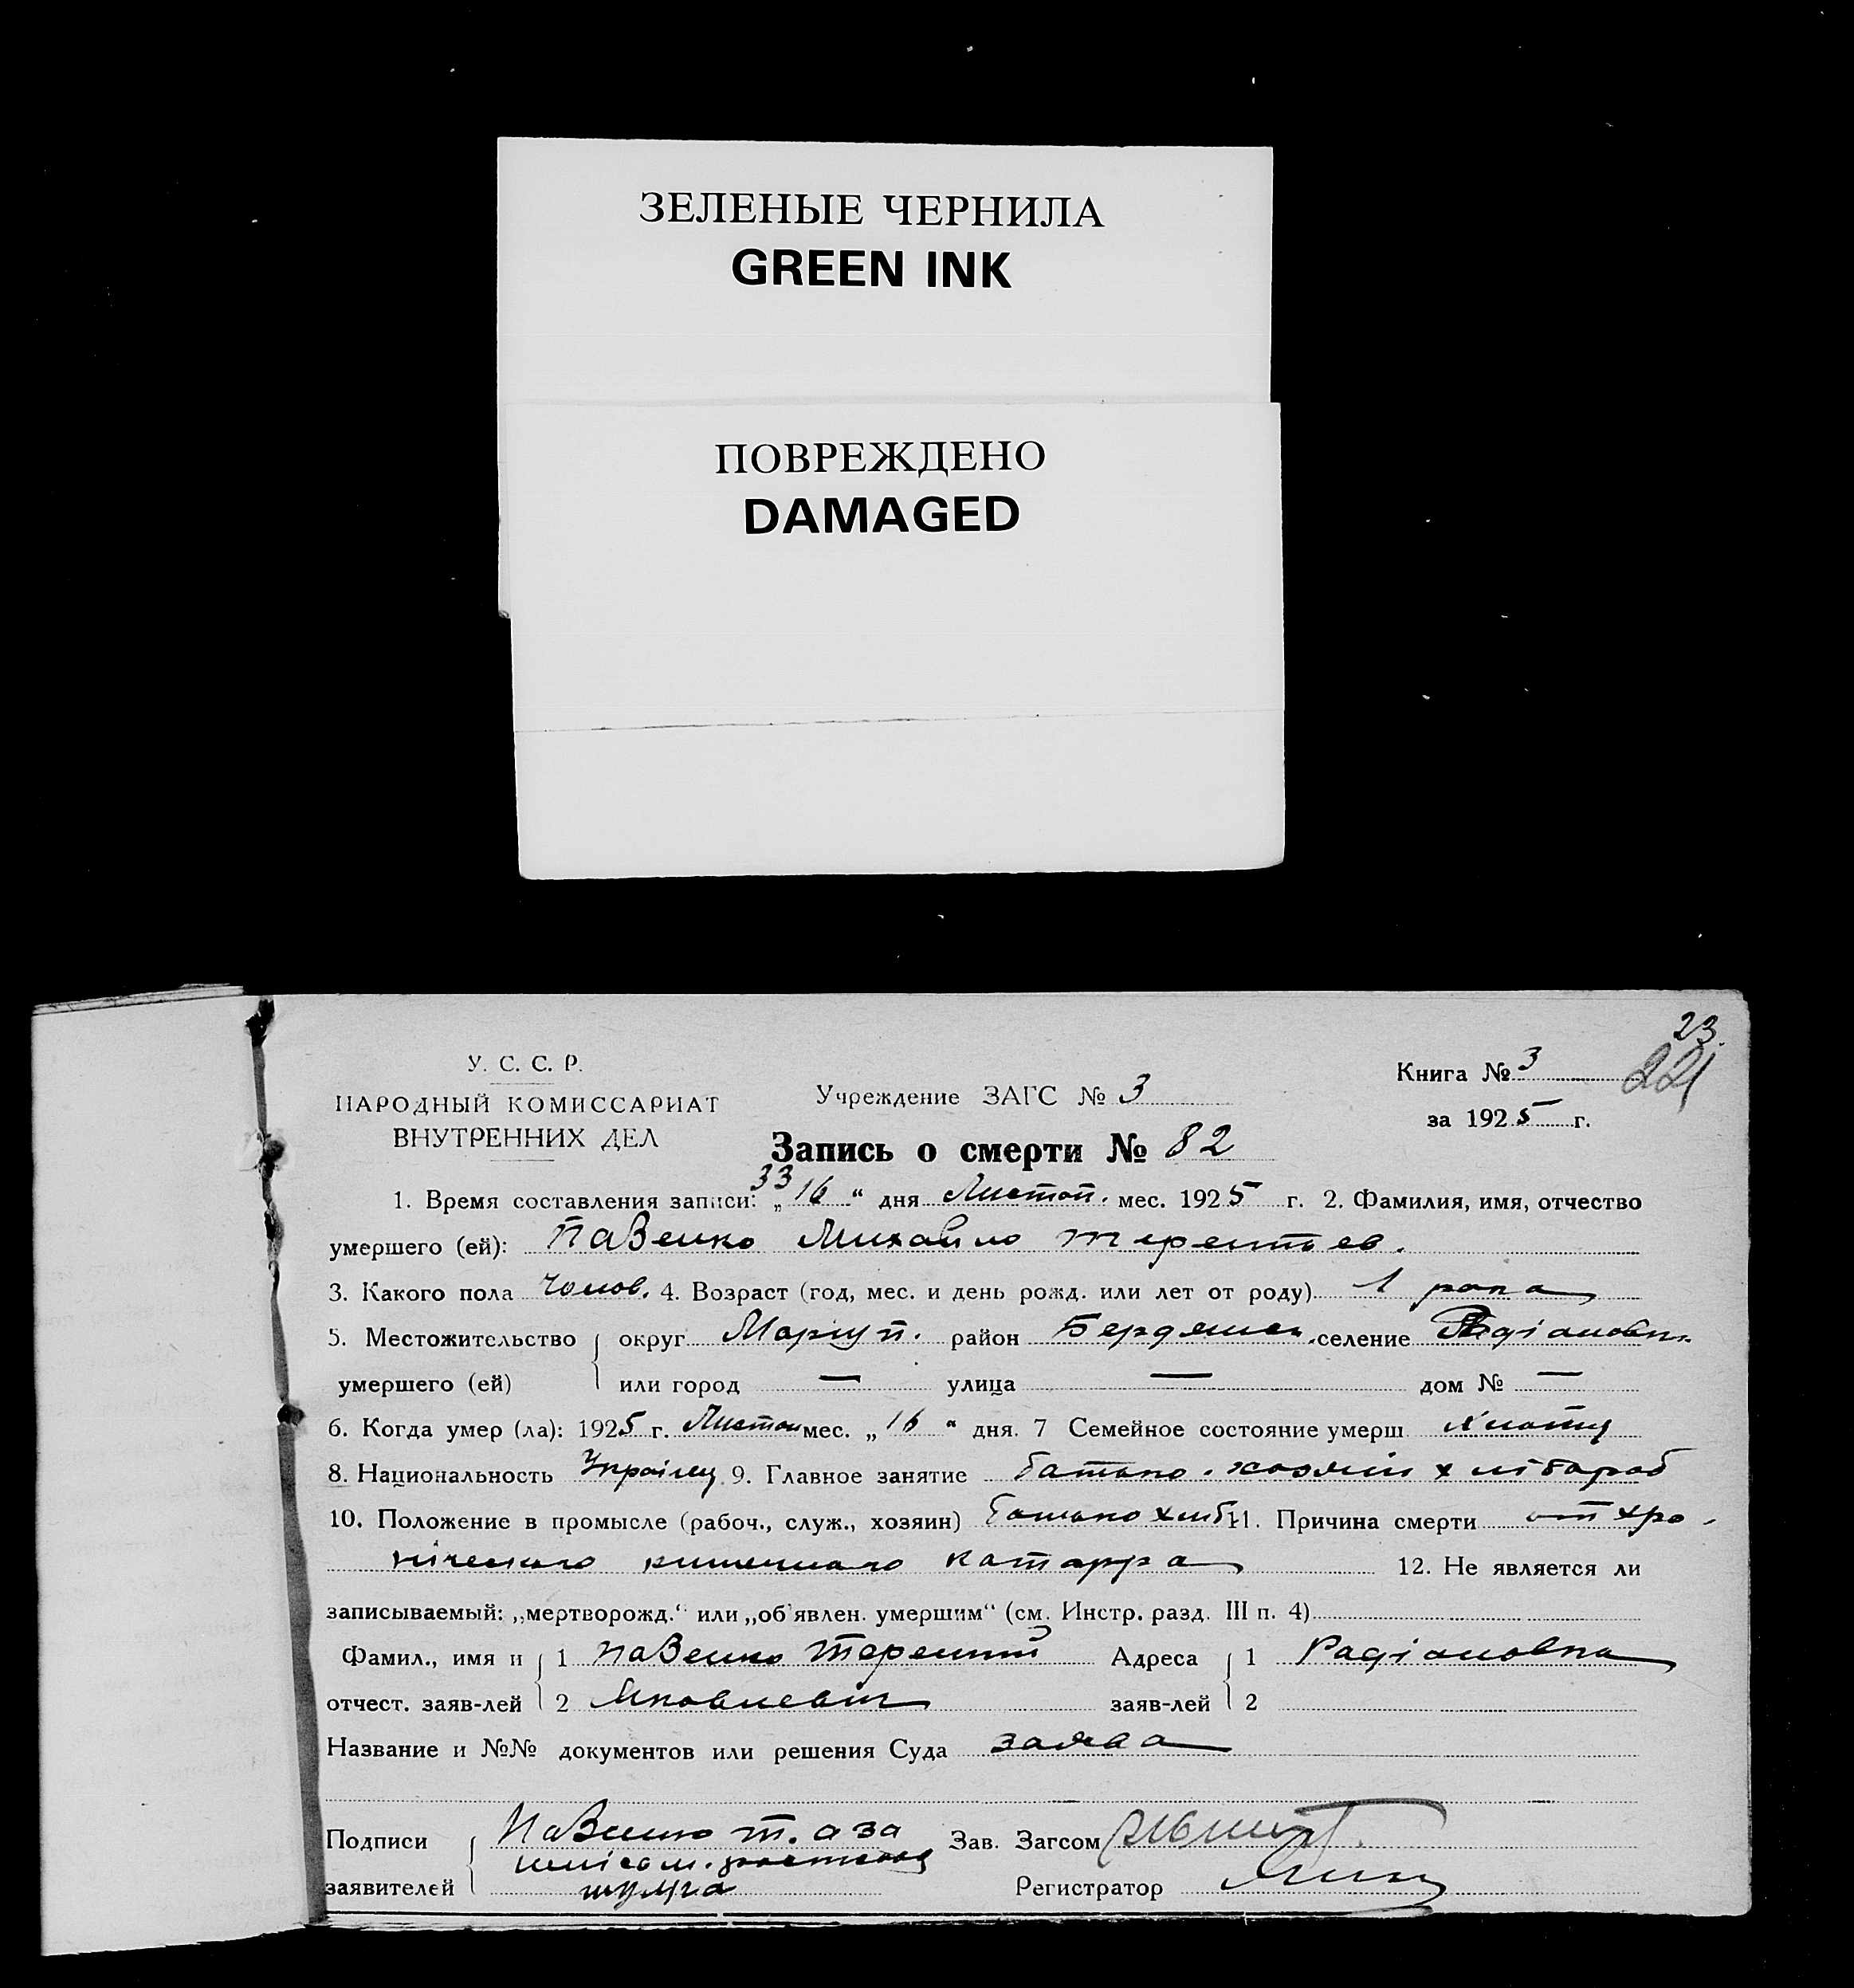 ЗЕЛЕНЫЕ ЧЕРНИЛА
GREEN INK
ПОВРЕЖДЕНО
DAMAGED
23.
У. С. С. Р.
НАРОДНЫЙ КОМИССАРИАТ
ВНУТРЕННИХ ДЕЛ
Учреждение ЗАГС № 3
Книга № 3
221
за 1925 г.
Запись о смерти № 82
33
1. Время составления записи: „16“ дня Листоп. мес. 1925 г. 2. Фамилия, имя, отчество
умершего (ей): Павенко Михайло Терентьев.
3. Какого пола Чолов. 4. Возраст (год, мес. и день рожд. или лет от роду) 1 рока
5. Местожительство округ Маріуп. район Бердянск. селение Радіановк.
умершего (ей) или город — улица — дом № —
6. Когда умер (ла): 1925 г. Листоп мес. „16“ дня. 7 Семейное состояние умерш
8. Национальность Українец 9. Главное занятие батько. хозяїн хлібороб
10. Положение в промысле (рабоч., служ., хозяин) батько хліб. 11. Причина смерти от хро-
нического кишечного катарра 12. Не является ли
записываемый: „мертворожд.“ или „об'явлен. умершим“ (см. Инстр. разд. III п. 4)
Фамил., имя и 1 Павенко Терентий Адреса 1 Радіановка
отчест. заяв-лей 2 Яковлевич заяв-лей 2
Название и №№ документов или решения Суда заява
Подписи Павенко Т. а за Зав. Загсом
заявителей Регистратор